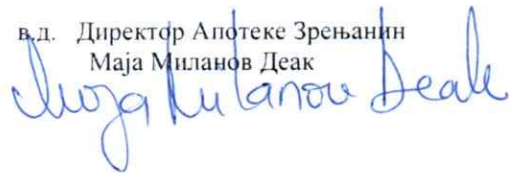 в.д. Директор Апотеке Зрењанин
Маја Миланов Деак
Maja Milanov Deak